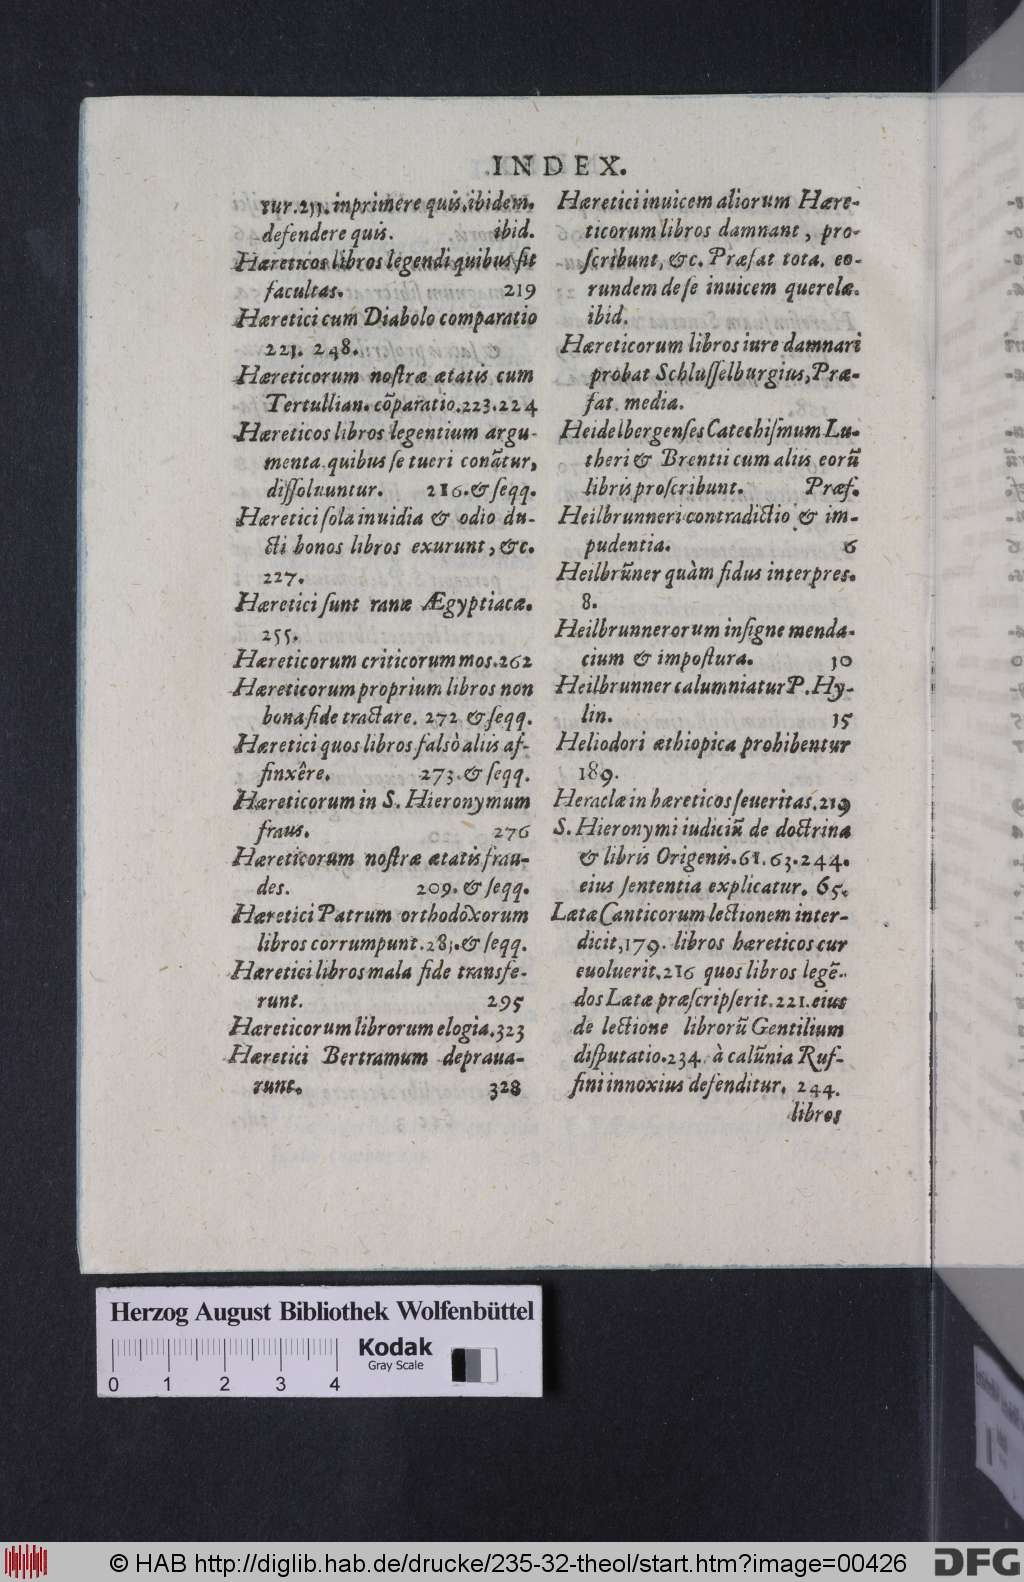 INDEX.
tur.211. inprimere quis, ibidem.
defendere quis. ibid.
Hæreticos libros legendi quibus sit
facultas. 219
Hæretici cum Diabolo comparatio
221. 248.
Hæreticorum nostræ ætatis cum
Tertullian. cõparatio. 223. 224
Hæreticos libros legentium argu-
menta quibus se tueri conãtur,
dissoluuntur. 216. & seqq.
Hæretici sola inuidia & odio du-
cti bonos libros exurunt, &c.
227.
Hæretici sunt ranæ Ægyptiacæ.
255.
Hæreticorum criticorum mos. 262
Hæreticorum proprium libros non
bona fide tractare. 272 & seqq.
Hæretici quos libros falsò aliis af-
finxêre. 273. & seqq.
Hæreticorum in S. Hieronymum
fraus. 276
Hæreticorum nostræ ætatis frau-
des. 209. & seqq.
Hæretici Patrum orthodoxorum
libros corrumpunt. 283. & seqq.
Hæretici libros mala fide transfe-
runt. 295
Hæreticorum librorum elogia. 323
Hæretici Bertramum depraua-
runt. 328
Hæretici inuicem aliorum Hære-
ticorum libros damnant, pro-
scribunt, &c. Præfat tota. eo-
rundem de se inuicem querelæ.
ibid.
Hæreticorum libros iure damnari
probat Schlusselburgius, Præ-
fat. media.
Heidelbergenses Catechismum Lu-
theri & Brentii cum aliis eorũ
libris proscribunt. Præf.
Heilbrunneri contradictio & im-
pudentia. 6
Heilbrũner quàm fidus interpres.
8.
Heilbrunnerorum insigne menda-
cium & impostura. 10
Heilbrunner calumniatur P. Hy-
lin. 15
Heliodori æthiopica prohibentur
189.
Heraclæ in hæreticos seueritas. 219
S. Hieronymi iudiciũ de doctrina
& libris Origenis. 61. 63. 244.
eius sententia explicatur. 65.
Lætæ Canticorum lectionem inter-
dicit, 179. libros hæreticos cur
euoluerit. 216 quos libros legẽ-
dos Lætæ præscripserit. 221. eius
de lectione librorũ Gentilium
disputatio. 234. à calũnia Ruf-
fini innoxius defenditur. 244.
libros
Herzog August Bibliothek Wolfenbüttel
Kodak
Gray Scale
0 1 2 3 4
© HAB http://diglib.hab.de/drucke/235-32-theol/start.htm?image=00426
DFG